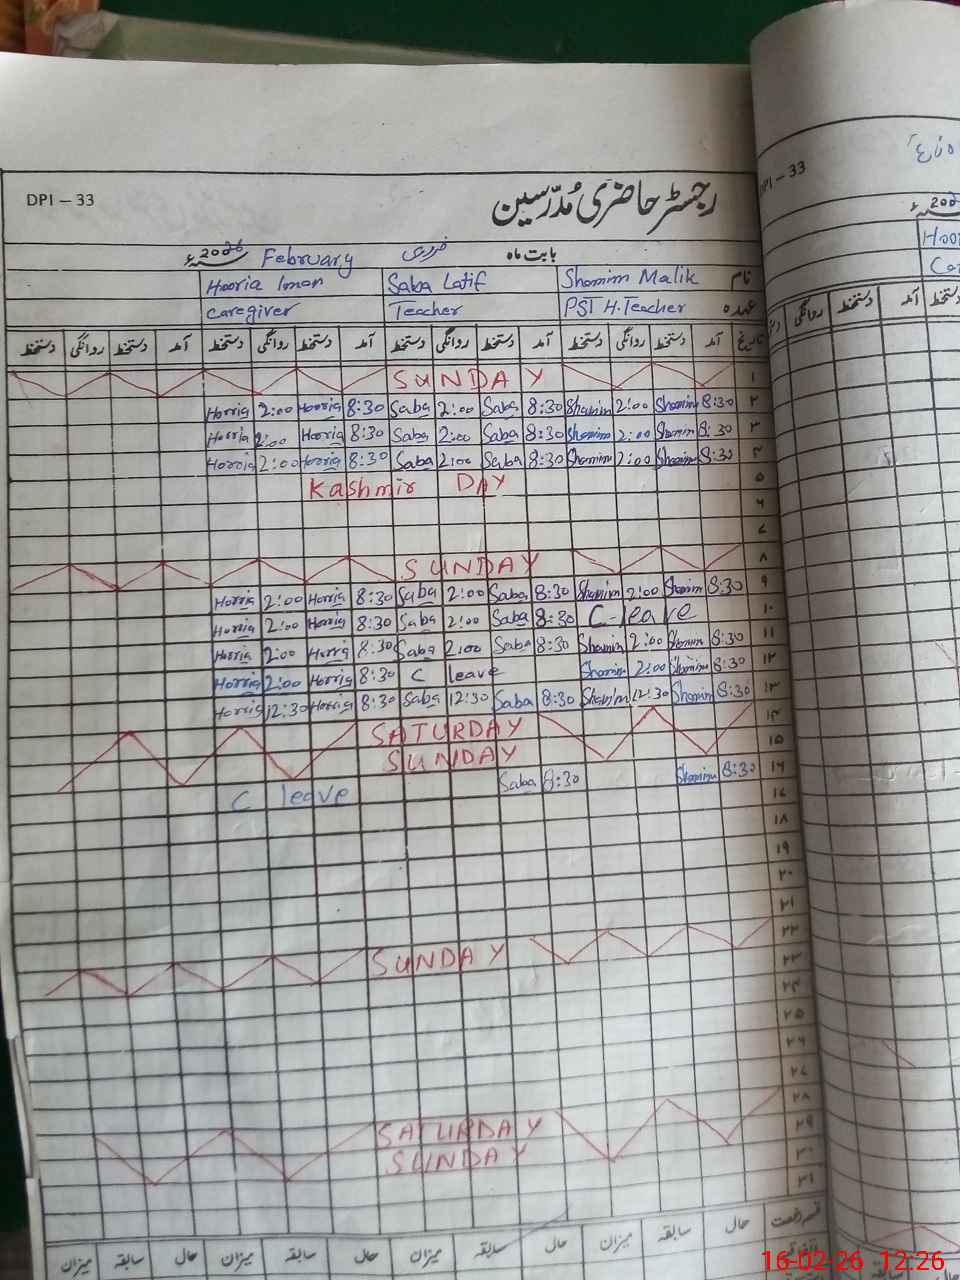 DPI – 33
رجسٹر حاضری مُدرّسین
بابت ماہ فروری February 2026ء
نام Shamim Malik Saba Latif Hooria Iman
عہدہ PST H.Teacher Teacher Caregiver
تاریخ آمد دستخط روانگی دستخط آمد دستخط روانگی دستخط آمد دستخط روانگی دستخط آمد دستخط روانگی دستخط
۱ SUNDAY
۲ 8:30 Shamim 2:00 Shamim 8:30 Saba 2:00 Saba 8:30 Hooria 2:00 Horria
۳ 8:30 Shamim 2:00 Shamim 8:30 Saba 2:00 Saba 8:30 Hooria 2:00 Horria
۴ 8:30 Shamim 2:00 Shamim 8:30 Saba 2:00 Saba 8:30 Hooria 2:00 Horria
۵ Kashmir DAY
۶
۷
۸ SUNDAY
۹ 8:30 Shamim 2:00 Shamim 8:30 Saba 2:00 Saba 8:30 Horria 2:00 Horria
۱۰ C-leave 8:30 Saba 2:00 Saba 8:30 Horria 2:00 Horria
۱۱ 8:30 Shamim 2:00 Shamim 8:30 Saba 2:00 Saba 8:30 Horria 2:00 Horria
۱۲ 8:30 Shamim 2:00 Shamim C leave 8:30 Horria 2:00 Horria
۱۳ 8:30 Shamim 12:30 Shamim 8:30 Saba 12:30 Saba 8:30 Horria 12:30 Horria
۱۴ SATURDAY
۱۵ SUNDAY
۱۶ 8:30 Shamim 8:30 Saba C leave
۱۷
۱۸
۱۹
۲۰
۲۱
۲۲ SUNDAY
۲۳
۲۴
۲۵
۲۶
۲۷
۲۸ SATURDAY
۲۹ SUNDAY
۳۰
۳۱
قسم رخصت حال سابقہ میزان حال سابقہ میزان حال سابقہ میزان حال سابقہ میزان
DPI – 33
دستخط آمد دستخط روانگی
16-02-26 12:26